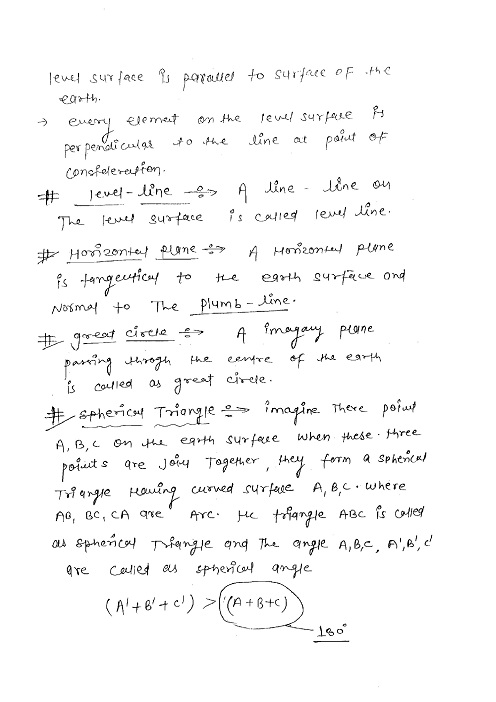 level surface is parallel to surface of the
earth.
→ every element on the level surface is
perpendicular to the line at point of
consideration.
# level-line ÷> A line - line on
The level surface is called level line.
# Horizontal plane ÷> A Horizontal plane
is tangentical to the earth surface and
Normal to The Plumb-line.
# great circle ÷> A imagary plane
passing throgh the centre of the earth
is called as great circle.
# Spherical Triangle ÷> imagine There point
A, B, C on the earth surface when these three
points are join Together, they form a spherical
Triangle Having curved surface A, B, C. where
AB, BC, CA are Arc. the triangle ABC is called
as spherical Triangle and The angle A, B, C, A', B', C'
are called as spherical angle
(A' + B' + C') > (A + B + C)
180°